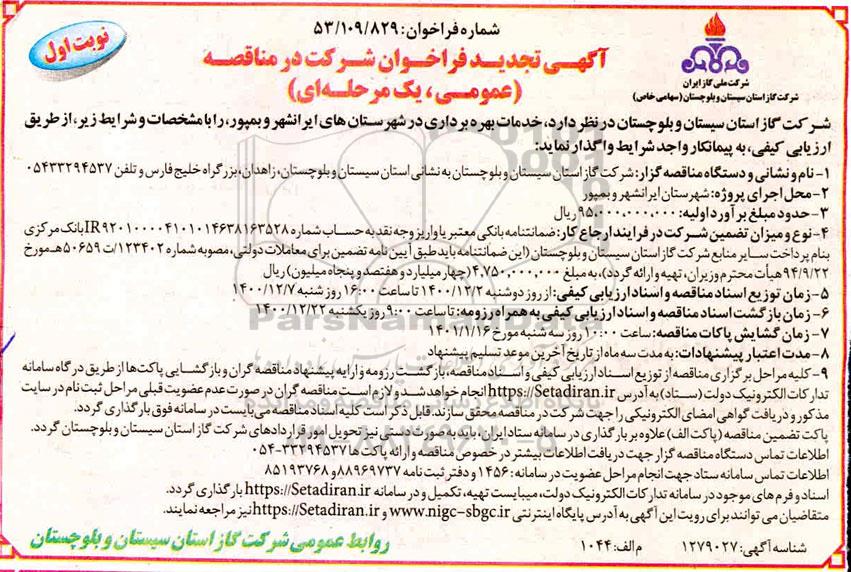 شماره فراخوان: ۵۳/۱۰۹/۸۲۹
نوبت اول
آگهی تجدید فراخوان شرکت در مناقصه
(عمومی، یک مرحله‌ای)
شرکت ملی گاز ایران
شرکت گاز استان سیستان و بلوچستان (سهامی خاص)
شرکت گاز استان سیستان و بلوچستان در نظر دارد، خدمات بهره برداری در شهرستان های ایرانشهر و بمپور، را با مشخصات و شرایط زیر، از طریق
ارزیابی کیفی، به پیمانکار واجد شرایط واگذار نماید:
۱- نام و نشانی و دستگاه مناقصه گزار: شرکت گاز استان سیستان و بلوچستان به نشانی استان سیستان و بلوچستان، زاهدان، بزرگراه خلیج فارس و تلفن ۰۵۴۳۳۲۹۴۵۳۷
۲- محل اجرای پروژه: شهرستان ایرانشهر و بمپور
۳- حدود مبلغ برآورد اولیه: ۹۵،۰۰۰،۰۰۰،۰۰۰ ریال
۴- نوع و میزان تضمین شرکت در فرایند ارجاع کار: ضمانتنامه بانکی معتبر یا واریز وجه نقد به حساب شماره IR۹۲۰۱۰۰۰۰۴۱۰۱۰۱۴۶۳۸۱۶۳۵۲۸ بانک مرکزی
بنام پرداخت سایر منابع شرکت گاز استان سیستان و بلوچستان (این ضمانتنامه باید طبق آیین نامه تضمین برای معاملات دولتی، مصوبه شماره ۱۲۳۴۰۲/ت ۵۰۶۵۹ هـ مورخ
۹۴/۹/۲۲ هیأت محترم وزیران، تهیه و ارائه گردد)، به مبلغ ۴،۷۵۰،۰۰۰،۰۰۰ (چهار میلیارد و هفتصد و پنجاه میلیون) ریال
۵- زمان توزیع اسناد مناقصه و اسناد ارزیابی کیفی: از روز دوشنبه ۱۴۰۰/۱۲/۲ تا ساعت ۱۶:۰۰ روز شنبه ۱۴۰۰/۱۲/۷
۶- زمان بازگشت اسناد مناقصه و اسناد ارزیابی کیفی به همراه رزومه: تا ساعت ۹:۰۰ روز یکشنبه ۱۴۰۰/۱۲/۲۲
۷- زمان گشایش پاکات مناقصه: ساعت ۱۰:۰۰ روز سه شنبه مورخ ۱۴۰۱/۱/۱۶
۸- مدت اعتبار پیشنهادات: به مدت سه ماه از تاریخ آخرین موعد تسلیم پیشنهاد
۹- کلیه مراحل برگزاری مناقصه از توزیع اسناد ارزیابی کیفی و اسناد مناقصه، بازگشت رزومه و ارایه پیشنهاد مناقصه گران و بازگشایی پاکت‌ها از طریق درگاه سامانه
تدارکات الکترونیک دولت (ستاد) به آدرس https://Setadiran.ir انجام خواهد شد و لازم است مناقصه گران در صورت عدم عضویت قبلی مراحل ثبت نام در سایت
مذکور و دریافت گواهی امضای الکترونیکی را جهت شرکت در مناقصه محقق سازند. قابل ذکر است کلیه اسناد مناقصه می‌بایست در سامانه فوق بارگذاری گردد.
پاکت تضمین مناقصه (پاکت الف) علاوه بر بارگذاری در سامانه ستاد ایران، باید به صورت دستی نیز تحویل امور قراردادهای شرکت گاز استان سیستان و بلوچستان گردد.
اطلاعات تماس دستگاه مناقصه گزار جهت دریافت اطلاعات بیشتر در خصوص مناقصه و ارائه پاکت ها ۳۳۲۹۴۵۳۷-۰۵۴
اطلاعات تماس سامانه ستاد جهت انجام مراحل عضویت در سامانه: ۱۴۵۶ و دفتر ثبت نامه ۸۸۹۶۹۷۳۷ و ۸۵۱۹۳۷۶۸
اسناد و فرم های موجود در سامانه تدارکات الکترونیک دولت، میبایست تهیه، تکمیل و در سامانه https://Setadiran.ir بارگذاری گردد.
متقاضیان می توانند برای رویت این آگهی به آدرس پایگاه اینترنتی www.nigc-sbgc.ir و https://Setadiran.ir نیز مراجعه نمایند.
شناسه آگهی: ۱۲۷۹۰۲۷
م الف: ۱۰۴۴
روابط عمومی شرکت گاز استان سیستان و بلوچستان